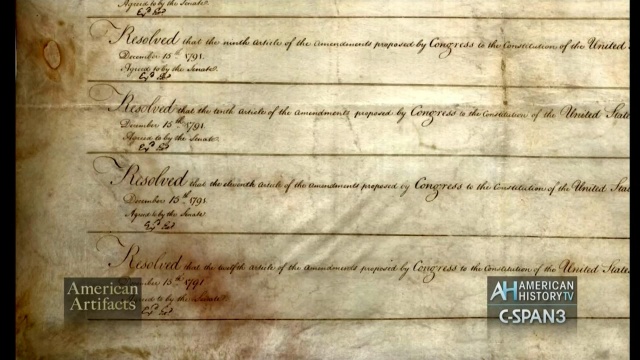 Agreed to by the Senate
Resolved that the ninth Article of the Amendments proposed by Congress to the Constitution of the United
December 15th 1791.
Agreed to by the Senate.
Resolved that the tenth Article of the Amendments proposed by Congress to the Constitution of the United State
December 15th 1791.
Agreed to by the Senate.
Resolved that the eleventh Article of the Amendments proposed by Congress to the Constitution of the United State
December 15th 1791.
Agreed to by the Senate
Resolved that the twelfth Article of the Amendments proposed by Congress to the Constitution of the United State
mber 15th 1791
d to by the Senate.
American
Artifacts
AH AMERICAN
HISTORY TV
C-SPAN3